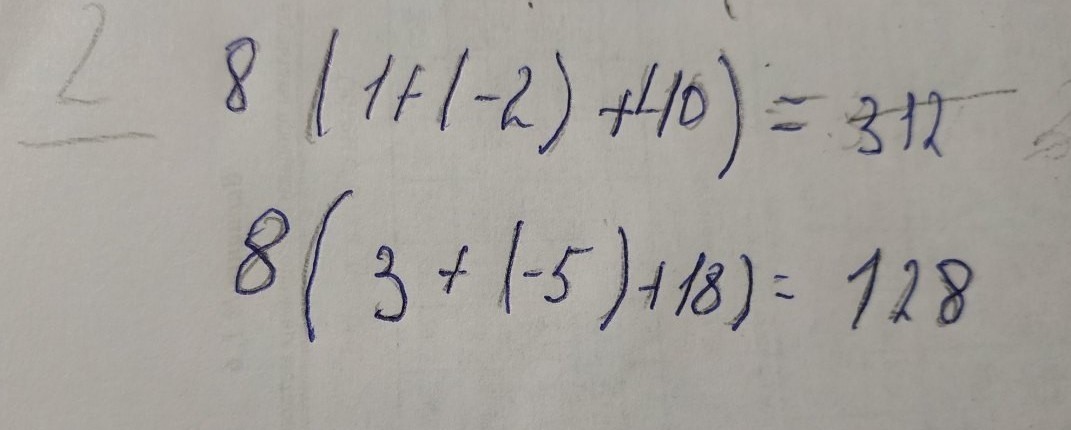 2
8 (1+(-2) +40) = 312
8(3 + (-5)+18) = 128